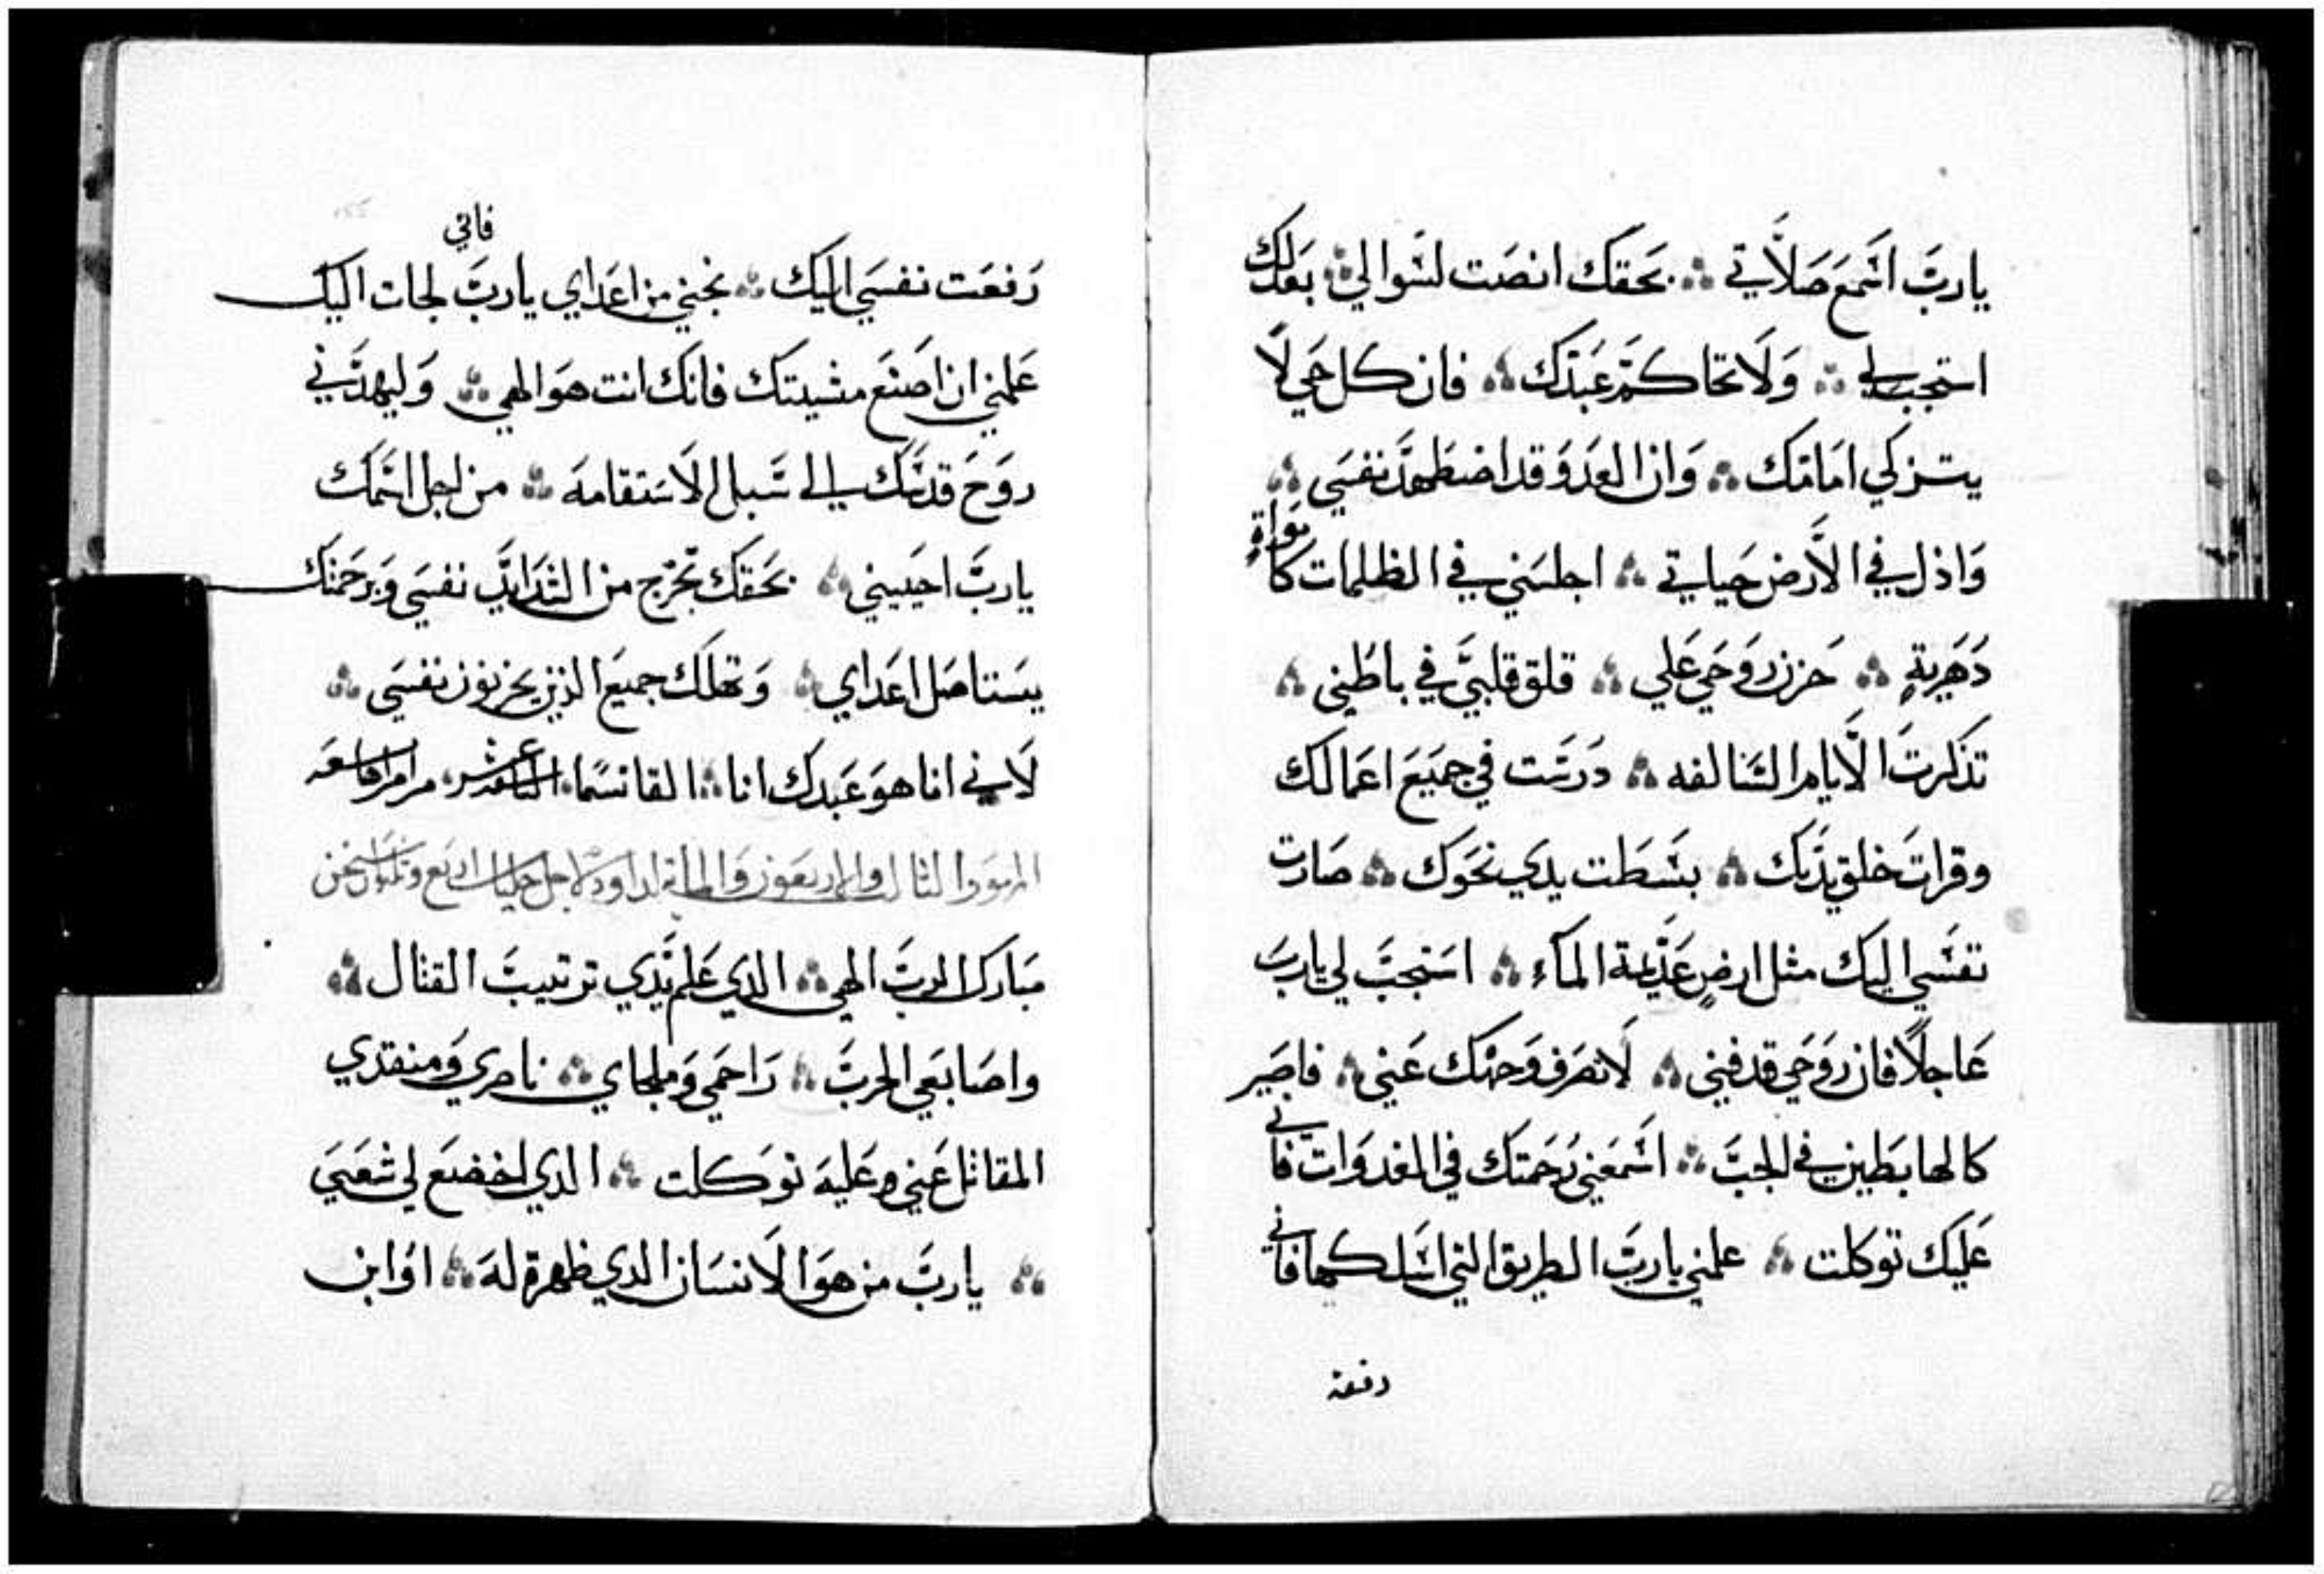 يارب اسمع صلاتي ܀ بحقك انصت لسوالي ܀ بعدلك
استجب لي ܀ ولا تحاكم عبدك ܀ فان كل حي لا
يتزكي امامك ܀ وان العدو قد اضطهد نفسي ܀
واذل في الارض حياتي ܀ اجلسني في الظلمات كامواة
دهرية ܀ حزن روحي علي ܀ قلق قلبي في باطني ܀
تذكرت الايام السالفه ܀ درست في جميع اعمالك
وقرات خلق يديك ܀ بسطت يدي نحوك ܀ صارت
نفسي اليك مثل ارض عديمة المآء ܀ استجب لي يارب
عاجلاً فان روحي قد فني ܀ لا تصرف وجهك عني ܀ فاصير
كالهابطين في الجب ܀ اسمعني رحمتك في الغدوات فاني
عليك توكلت ܀ علمني يارب الطريق التي اسلكها فاني
رفعت
رفعت نفسي اليك ܀ نجني من اعداي يارب فاني لجات اليك
علمني ان اصنع مشيتك فانك انت هو الهي ܀ وليهدني
روح قدسك الي سبل الاستقامه ܀ من اجل اسمك
يارب احييني ܀ بحقك تخرج من الشدايد نفسي وبرحمتك
يستاصل اعداي ܀ وتهلك جميع الذين يحزنون نفسي ܀
لاني انا هو عبدك انا ܀ القانسما التاسعشر مرامر تاسعه
المزمور الثالث والاربعون والماية لداود لاجل جلياث اربع وثلثون استخن
مبارك الرب الهي ܀ الدي علم يدي ترتيب القتال ܀
واصابعي الحرب ܀ راحمي وملجاي ܀ ناصري ومنقدي
المقاتل عني وعليه توكلت ܀ الدي اخضع لي شعبي
܀ يارب من هو الانسان الدي ظهرة له ܀ او ابن